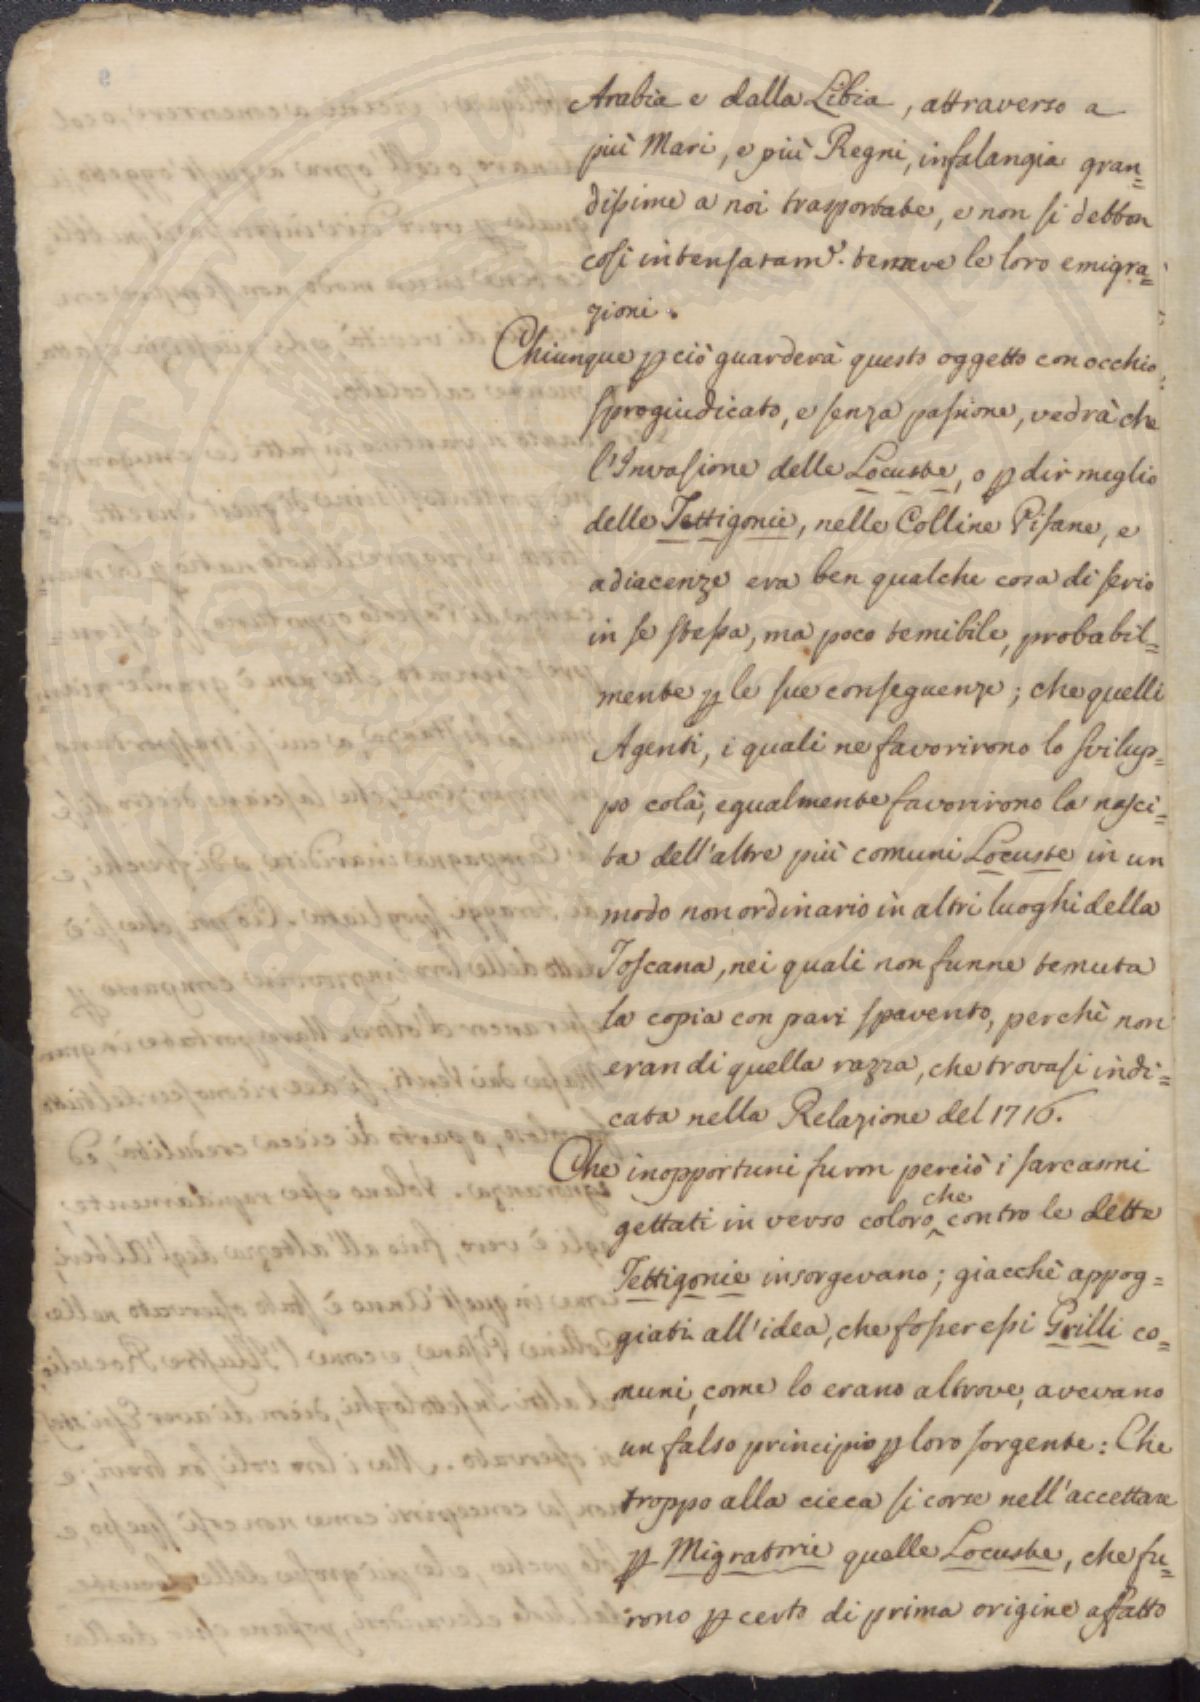 Arabia e dalla Libia, attraverso a
più Mari, e più Regni, in falangia gran=
dissime a noi trasportate, e non si debbon
così intensatam.e temere le loro emigra=
zioni.
Chiunque p ciò guarderà questo oggetto con occhio
spregiudicato, e senza passione, vedrà che
l'Invasione delle Locuste, o p dir meglio
delle Tettigonie, nelle Colline Pisane, e
adiacenze era ben qualche cosa di serio
in se stessa, ma poco temibile, probabil=
mente p le sue conseguenze; che quelli
Agenti, i quali ne favorirono lo svilup=
po colà, egualmente favorirono la nasci=
ta dell'altre più comuni Locuste in un
modo non ordinario in altri luoghi della
Toscana, nei quali non funne temuta
la copia con pari spavento, perchè non
eran di quella razza, che trovasi indi=
cata nella Relazione del 1716.
Che inopportuni furon perciò i sarcasmi
gettati in verso coloro che contro le dette
Tettigonie insorgevano; giacchè appog=
giati all'idea, che fosser essi Grilli co=
muni, come lo erano altrove, avevano
un falso principio p loro sorgente: Che
troppo alla cieca si corse nell'accettare
p Migratorie quelle Locuste, che fu=
rono p certo di prima origine affatto